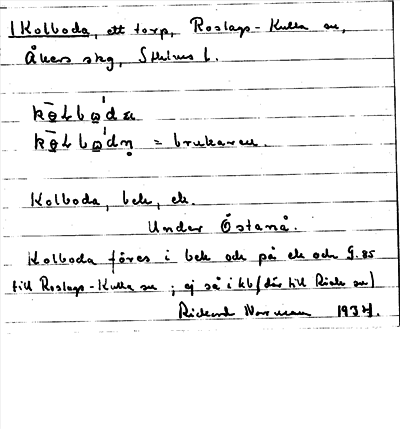 1 Kolboda, ett torp, Roslags-Kulla sn,
Åkers skg, Sthlms l.
= brukaren.
Kolboda, bek, ek.
Under Östanå.
Kolboda föres i bek och på ek och G.85
till Roslags-Kulla sn; ej så i kb (där till Riala sn)
Rickard Norrman 1934.